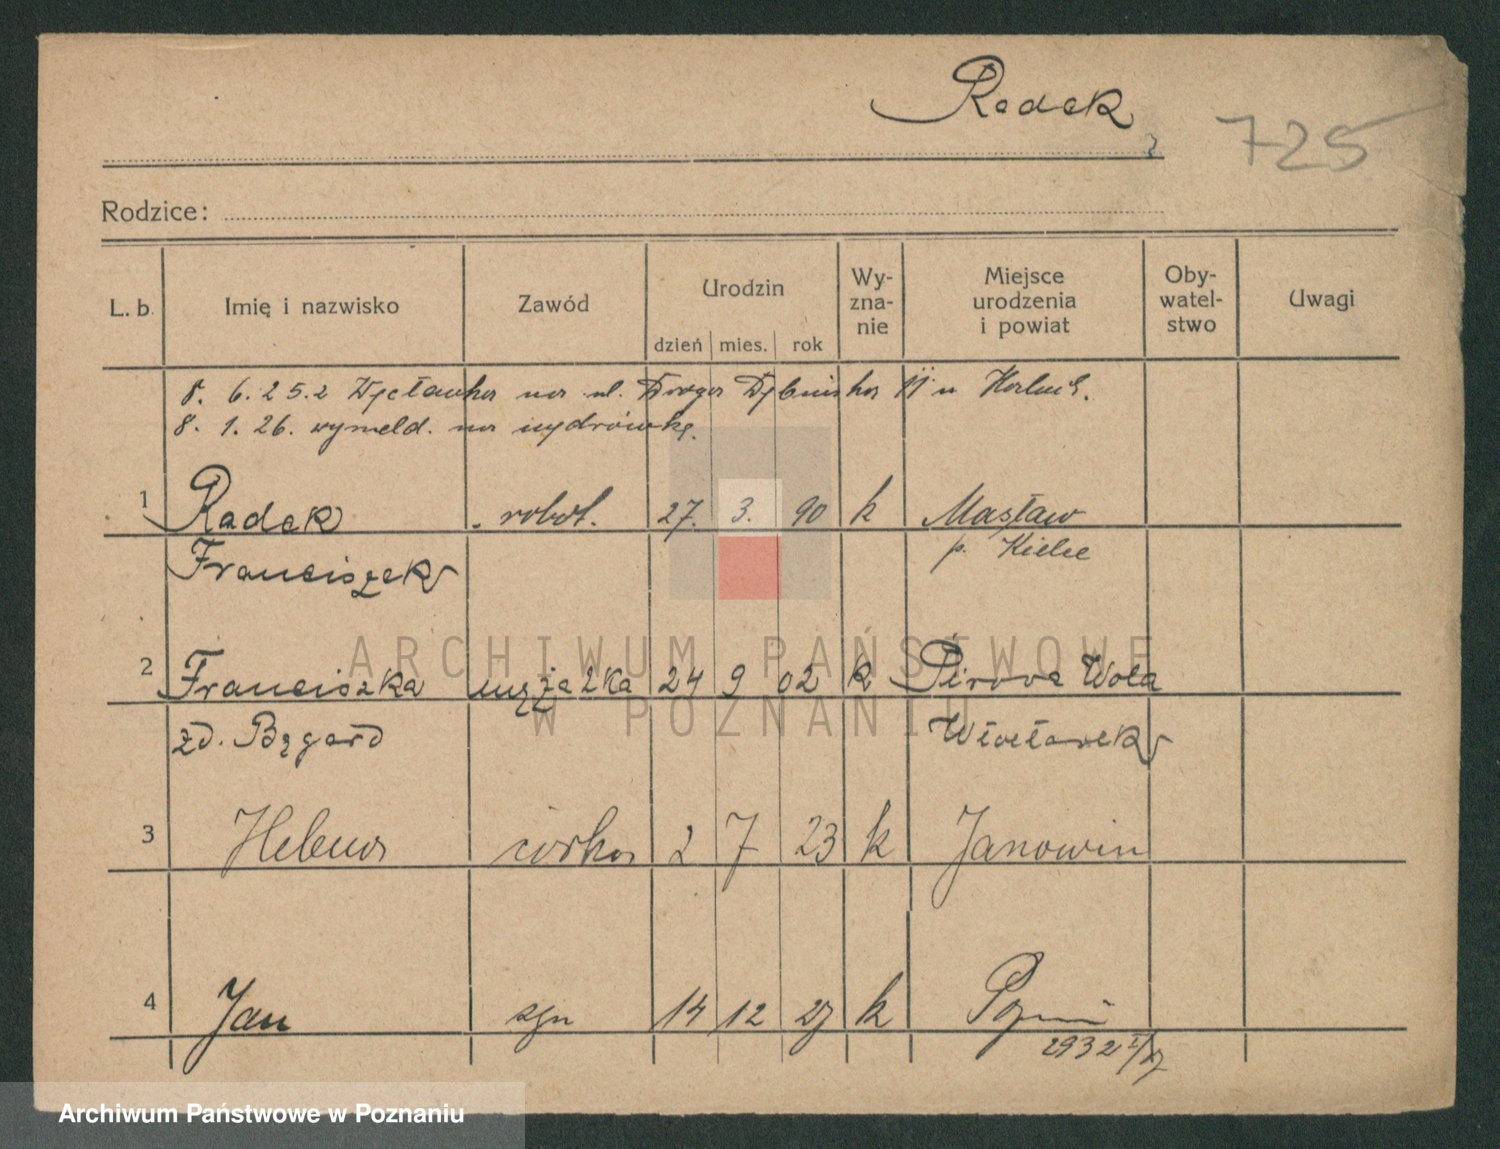 Radek
725
Rodzice:
L. b. Imię i nazwisko Zawód Urodzin dzień mies. rok Wy-zna-nie Miejsce urodzenia i powiat Oby-watel-stwo Uwagi
8. 6. 25. z na ul. Droga Dębińska 11 u
8. 1. 26. wymeld. na wędrówkę.
1 Radek robot. 27. 3. 90 k Masłow
Franciszek p. Kielce
2 Franciszka mężatka 24 9 02 k Wola
zd.
3 Helena córka 2 7 23 k Janowin
4 Jan syn 14 12 27 k
ARCHIWUM PAŃSTWOWE
W POZNANIU
Archiwum Państwowe w Poznaniu